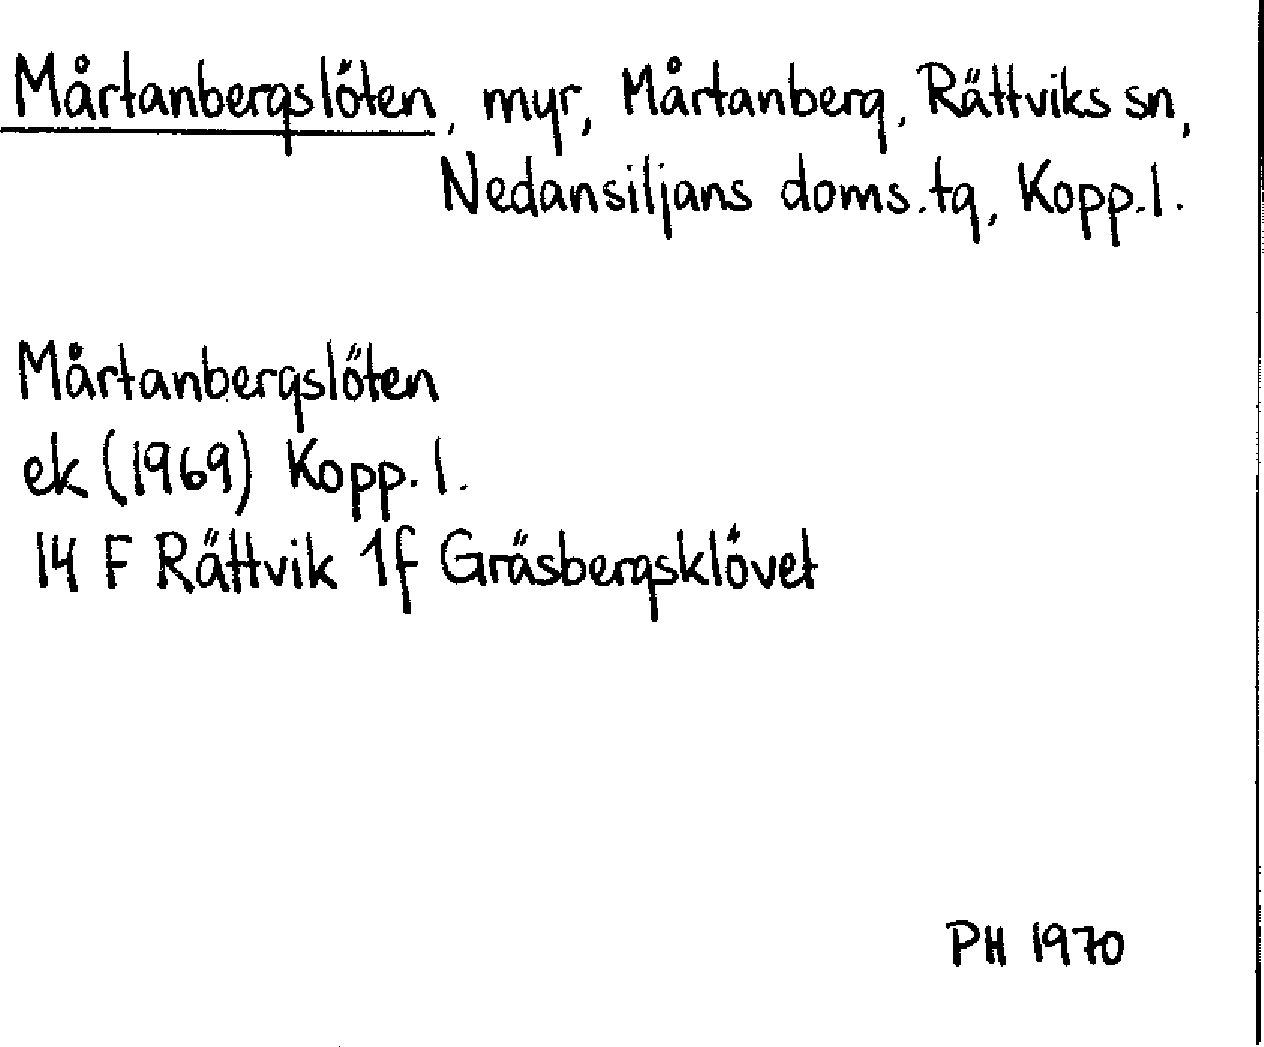 Mårtanbergslöten, myr, Mårtanberg, Rättviks sn,
Nedansiljans doms.tg, Kopp.l.
Mårtanbergslöten
ek (1969) Kopp.l.
14 F Rättvik 1f Gräsbergsklövet
PH 1970